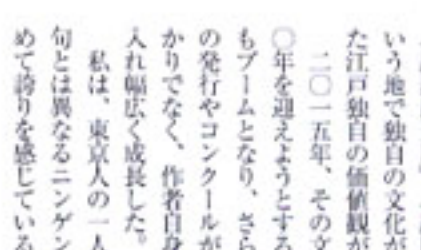 いう地で独自の文化が
た江戸独自の価値観が
二〇一五年、その文
〇年を迎えようとする
もブームとなり、さら
の発行やコンクールが
かりでなく、作者自身
入れ幅広く成長した。
私は、東京人の一人
句とは異なるニンゲン
めて誇りを感じている